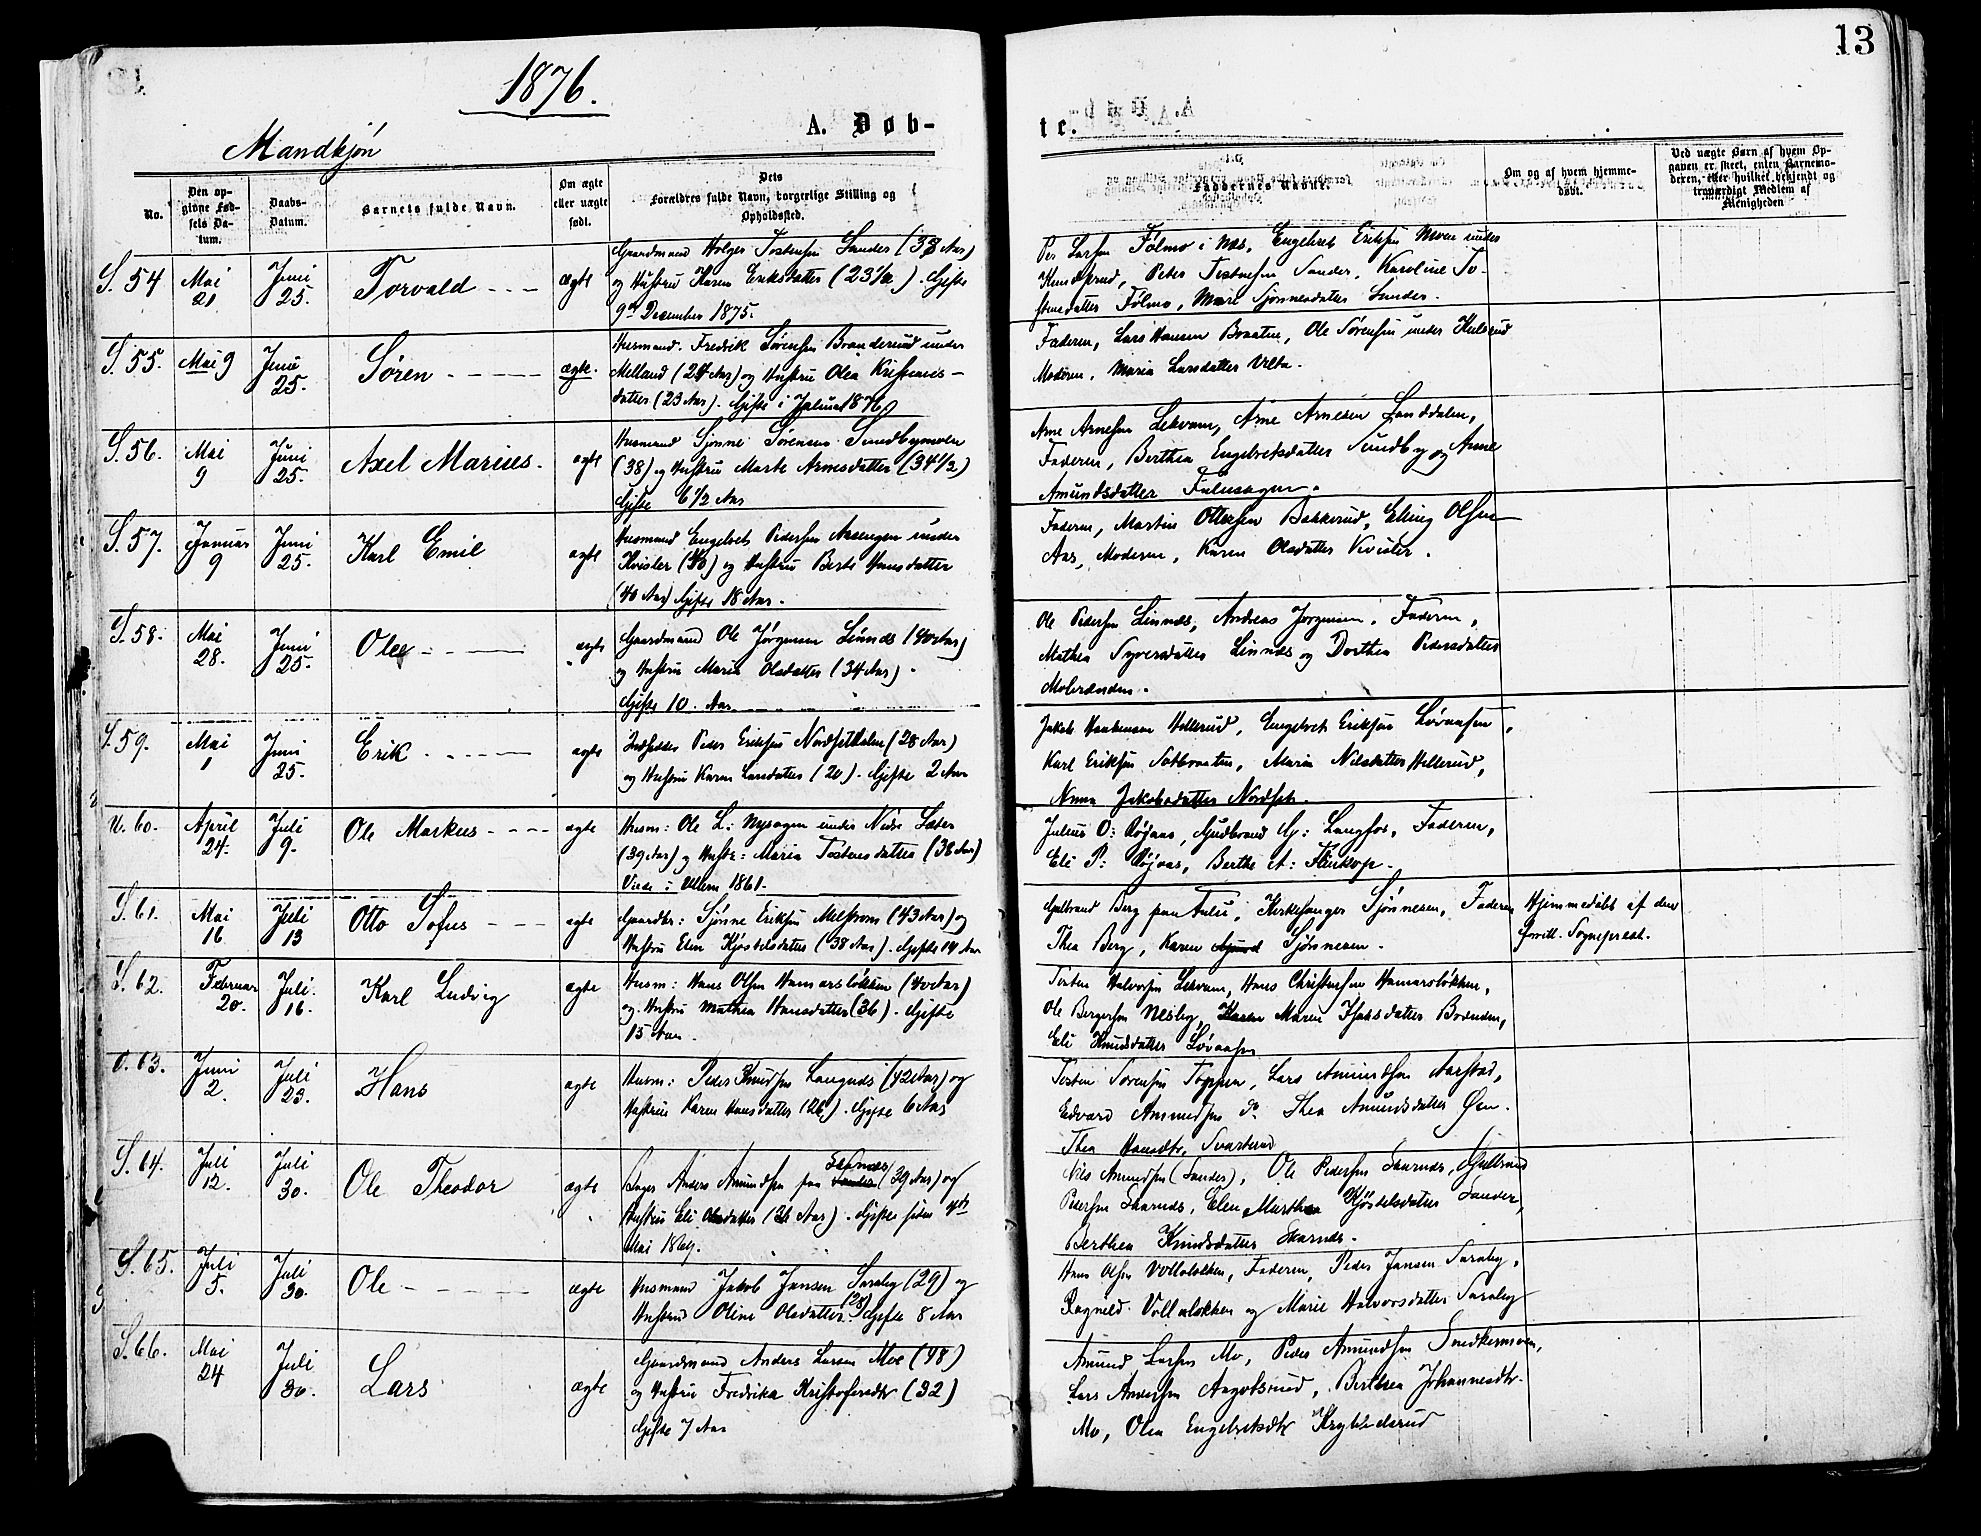 13
1876.
Mandkjøn
A. Døb-
te.
No.
Den op-
givne Fød-
sels Da-
tum.
Daabs-
Datum.
Barnets fulde Navn.
Om ægte
eller uægte
født.
Dets
Forældres fulde Navn, borgerlige Stilling og
Opholdssted.
Faddernes Navne.
Om og af hvem hjemme-
døbt.
Ved uægte Børn af hvem Op-
gaven er skeet, enten Barnemo-
deren, eller hvilket bekjendt og
troværdigt Medlem af
Menigheden
S. 54 Mai 21 Juni 25. Torvald ægte
Gaardmand Holger Tostensen Sander (38 Aar)
og Hustru Karen Eriksdatter (23 1/2). Gifte
9de December 1875.
Per Larsen Følmo i Næs, Engebret Eriksen Moen under
Peder Tostensen Sander, Karoline To-
stensdatter Følmo, Mari Sjønnesdatter Sander.
S. 55. Mai 9 Juni 25. Søren ægte.
Husmand Fredrik Sørensen Branderud under
Melland (24 Aar) og Hustru Olea Kristians-
datter (23 Aar). Gifte i Januar 1876
Faderen, Lars Hansen Braaten, Ole Sørensen under Hulsrud
Moderen, Maria Larsdatter Ulla.
S. 56. Mai 9 Juni 25. Axel Marius. ægte
Husmand Sjønne Sørensen Sundbymoen
(38) og Hustru Marte Arnesdatter (34 1/2)
Gifte 6 1/2 Aar
Arne Arnesen Lekvam, Arne Arnesen Sanddalen,
Faderen, Berthea Engebretsdatter Sundby og Anne
Amundsdatter
S. 57. Januar 9 Juni 25. Karl Emil ægte
Husmand Engebret Pedersen Aasengen under
Kvisler (40) og Hustru Berte Hansdatter
(40 Aar) Gifte 18 Aar.
Faderen, Martin Ottersen Bakkerud, Elling Olsen
Aas, Moderen, Karen Olsdatter Kvisler.
S. 58. Mai 28. Juni 25. Ole ægte
Gaardmand Ole Jørgensen Linnæs (40 Aar)
og Hustru Maria Olsdatter (34 Aar).
Gifte 10 Aar
Ole Pedersen Linnæs, Andreas Jørgensen, Faderen,
Mathea Syversdatter Linnæs og Dorthea Pedersdatter
Mobrænden.
S. 59. Mai 1 Juni 25. Erik ægte
Indhsidder Peder Eriksen Nordsetdalen (28 Aar)
og Hustru Karen Larsdatter (20). Gifte 2 Aar
Jakob Haakensen Hellerud, Engebret Eriksen Løvaasen,
Karl Eriksen Sætbraaten, Maria Nilsdatter Hellerud,
Anna Jakobsdatter Nordset.
U. 60. April 24. Juli 9. Ole Markus ægte
Husm: Ole L: Nysagen under Nedre Sæter
(39 Aar) og Hustr: Maria Tostensdatter (38 Aar)
Viede i Ullern 1861.
Julius O: Røjaas, Gudbrand G: Langfos, Faderen,
Eli P: Røjaas, Berthe A:
S. 61. Mai 16 Juli 13 Otto Sofus ægte
Gaardbr: Sjønne Eriksen Melstrøm (43 Aar) og
Hustru Elen Kjøstelsdatter (38 Aar). Gifte 14 Aar
Gulbrand Berg paa Aulie, Kirkesanger Sjønnesen, Faderen
Thea Berg, Karen Sjønnesen.
Hjemmedøbt af den
forrett. Sogneprest.
S. 62. Februar 20. Juli 16. Karl Ludvig ægte
Husm: Hans Olsen Hamarsløkken (40 Aar)
og Hustru Mathea Hansdatter (36). Gifte
15 Aar.
Tosten Halvorsen Lekvam, Hans Christensen Hamarsløkken,
Ole Bergersen Nesby, Karen Maren Isaksdatter Brænden,
Eli Knudsdatter Løvaasen
O. 63. Juni 2. Juli 23. Hans ægte
Husm: Peder Knudsen Langnæs (42 Aar) og
Hustru Karen Hansdatter (26). Gifte 6 Aar
Tosten Sørensen Toppen, Lars Amundsen Aarstad,
Edvard Amundsen do. Thea Amundsdatter Øen.
Thea Hansdtr. Svarterud
S. 64. Juli 12. Juli 30. Ole Theodor ægte
Bager Anders Amundsen paa Sander Skarnæs (39 Aar) og
Hustru Eli Olsdatter (26 Aar). Gifte siden 4de
Mai 1869.
Nils Amundsen (Sander), Ole Pedersen Skarnæs, Gulbrand
Pedersen Skarnæs, Elen Marthea Kjøstelsdatter Sander,
Berthea Knudsdatter Skarnæs.
S. 65. Juli 5. Juli 30. Ole ægte
Husmand Jakob Jansen Saraby (29) og
Hustru Oline Olsdatter (28) Gifte 8 Aar
Hans Olsen Vollaløkken, Faderen, Peder Jansen Saraby,
Ragnild Vollaløkken og Marie Halvorsdatter Saraby
S. 66. Mai 24 Juli 30. Lars ægte
Gaardmand Anders Larsen Moe (48)
og Hustru Fredrika Kristofersdtr (32)
Gifte 7 Aar
Amund Larsen Mo, Peder Amundsen Snekkermoen,
Lars Andersen Berthea Johannesdtr.
Mo, Olea Engebretsdtr